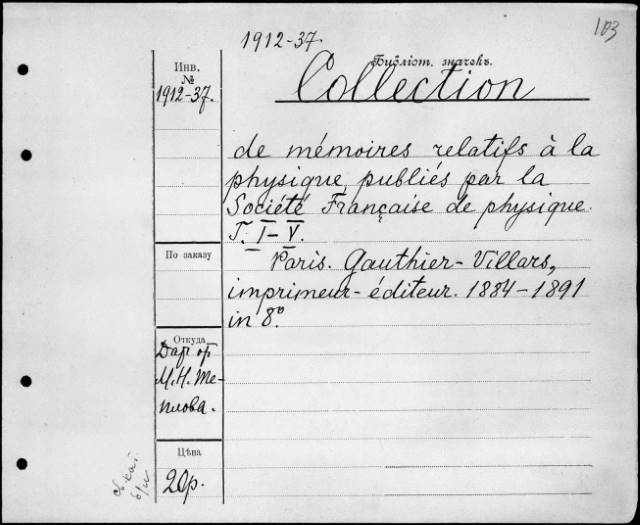 103
1912-37.
Библіот. значекъ.
Collection
Инв.
№
1912-37.
de mémoires relatifs à la
physique, publiés par la
Société Française de physique.
T. I-V.
Paris. Gauthier-Villars,
imprimeur-éditeur. 1884-1891
in 8º.
По заказу
Откуда
Дар от
М.Н. Те-
плова.
Цѣна
20р.